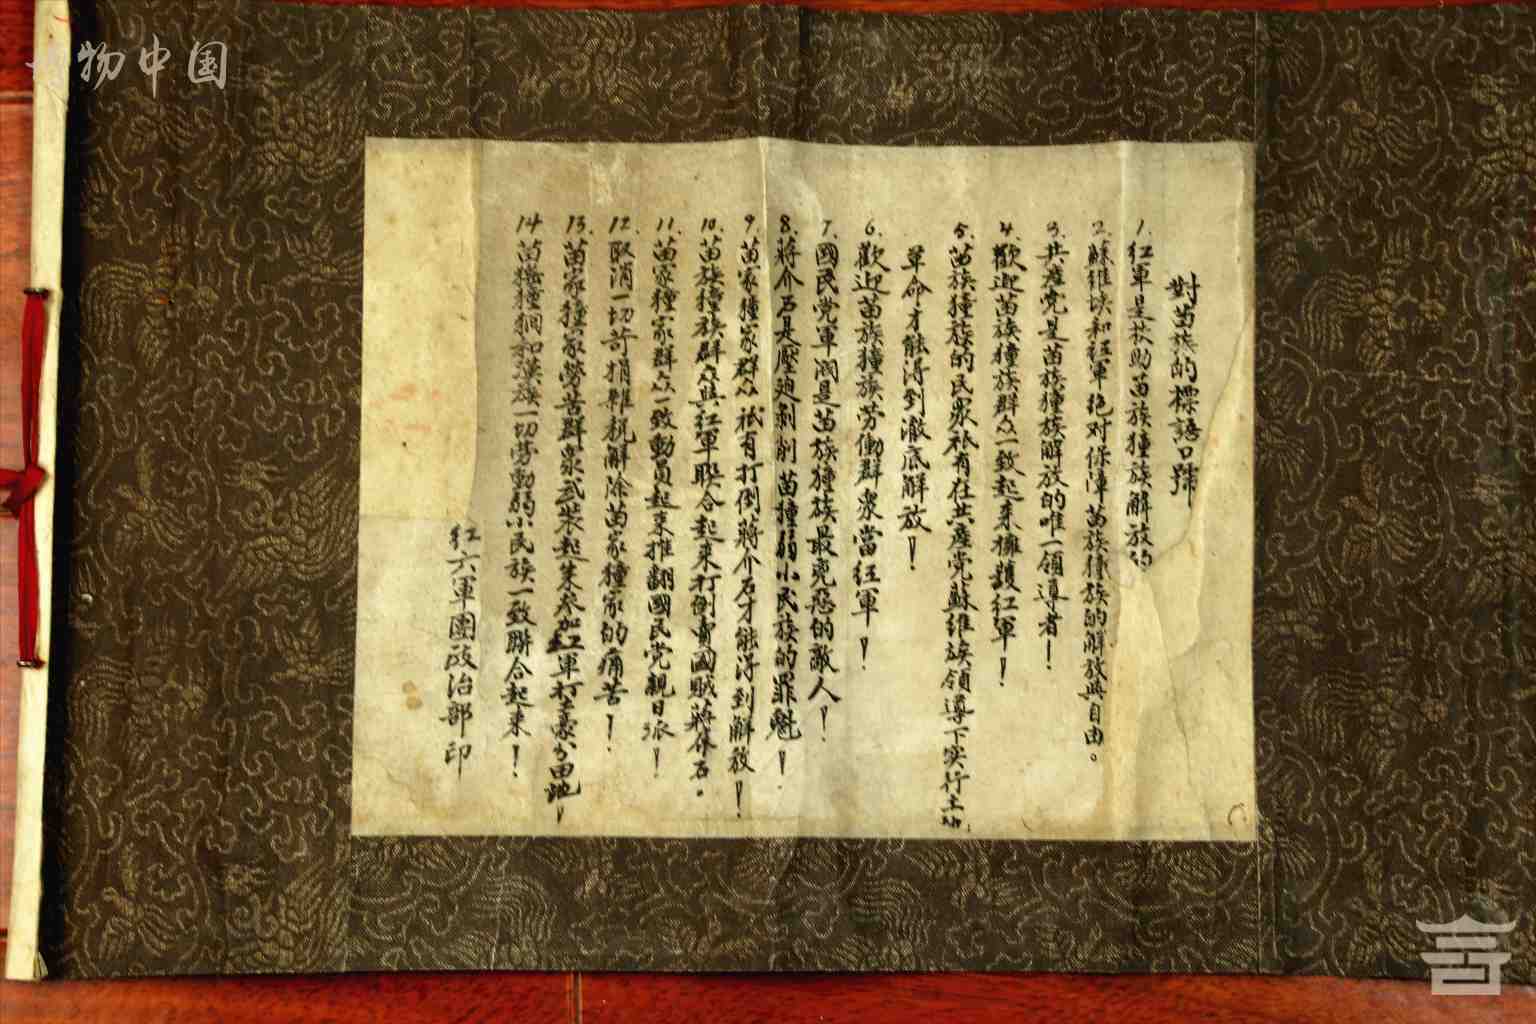 物中国
對苗族的標語口號
1. 紅軍是扶助苗族獞族解放的
2. 蘇維埃和紅軍绝对保障苗族獞族的解放與自由。
3. 共產党是苗族獞族解放的唯一領導者!
4. 歡迎苗族獞族群众一致起来擁護紅軍!
5. 苗族獞族的民衆祇有在共產党蘇維埃領導下实行土地
革命才能得到澈底解放!
6. 歡迎苗族獞族劳働群衆當紅軍!
7. 國民党軍閥是苗族獞族最兇惡的敵人!
8. 蔣介石是壓迫剝削苗獞弱小民族的罪魁!
9. 苗家獞家群众祇有打倒蔣介石才能得到解放!
10. 苗族獞族群众與紅軍联合起来打倒賣國賊蔣介石。
11. 苗家獞家群众一致動員起来推翻國民党親日派!
12. 取消一切苛捐雜税解除苗家獞家的痛苦!
13. 苗家獞家勞苦群衆武裝起来参加紅軍打土豪分田地!
14 苗猺獞狪和漢族一切劳動弱小民族一致聯合起来!
紅六軍團政治部印